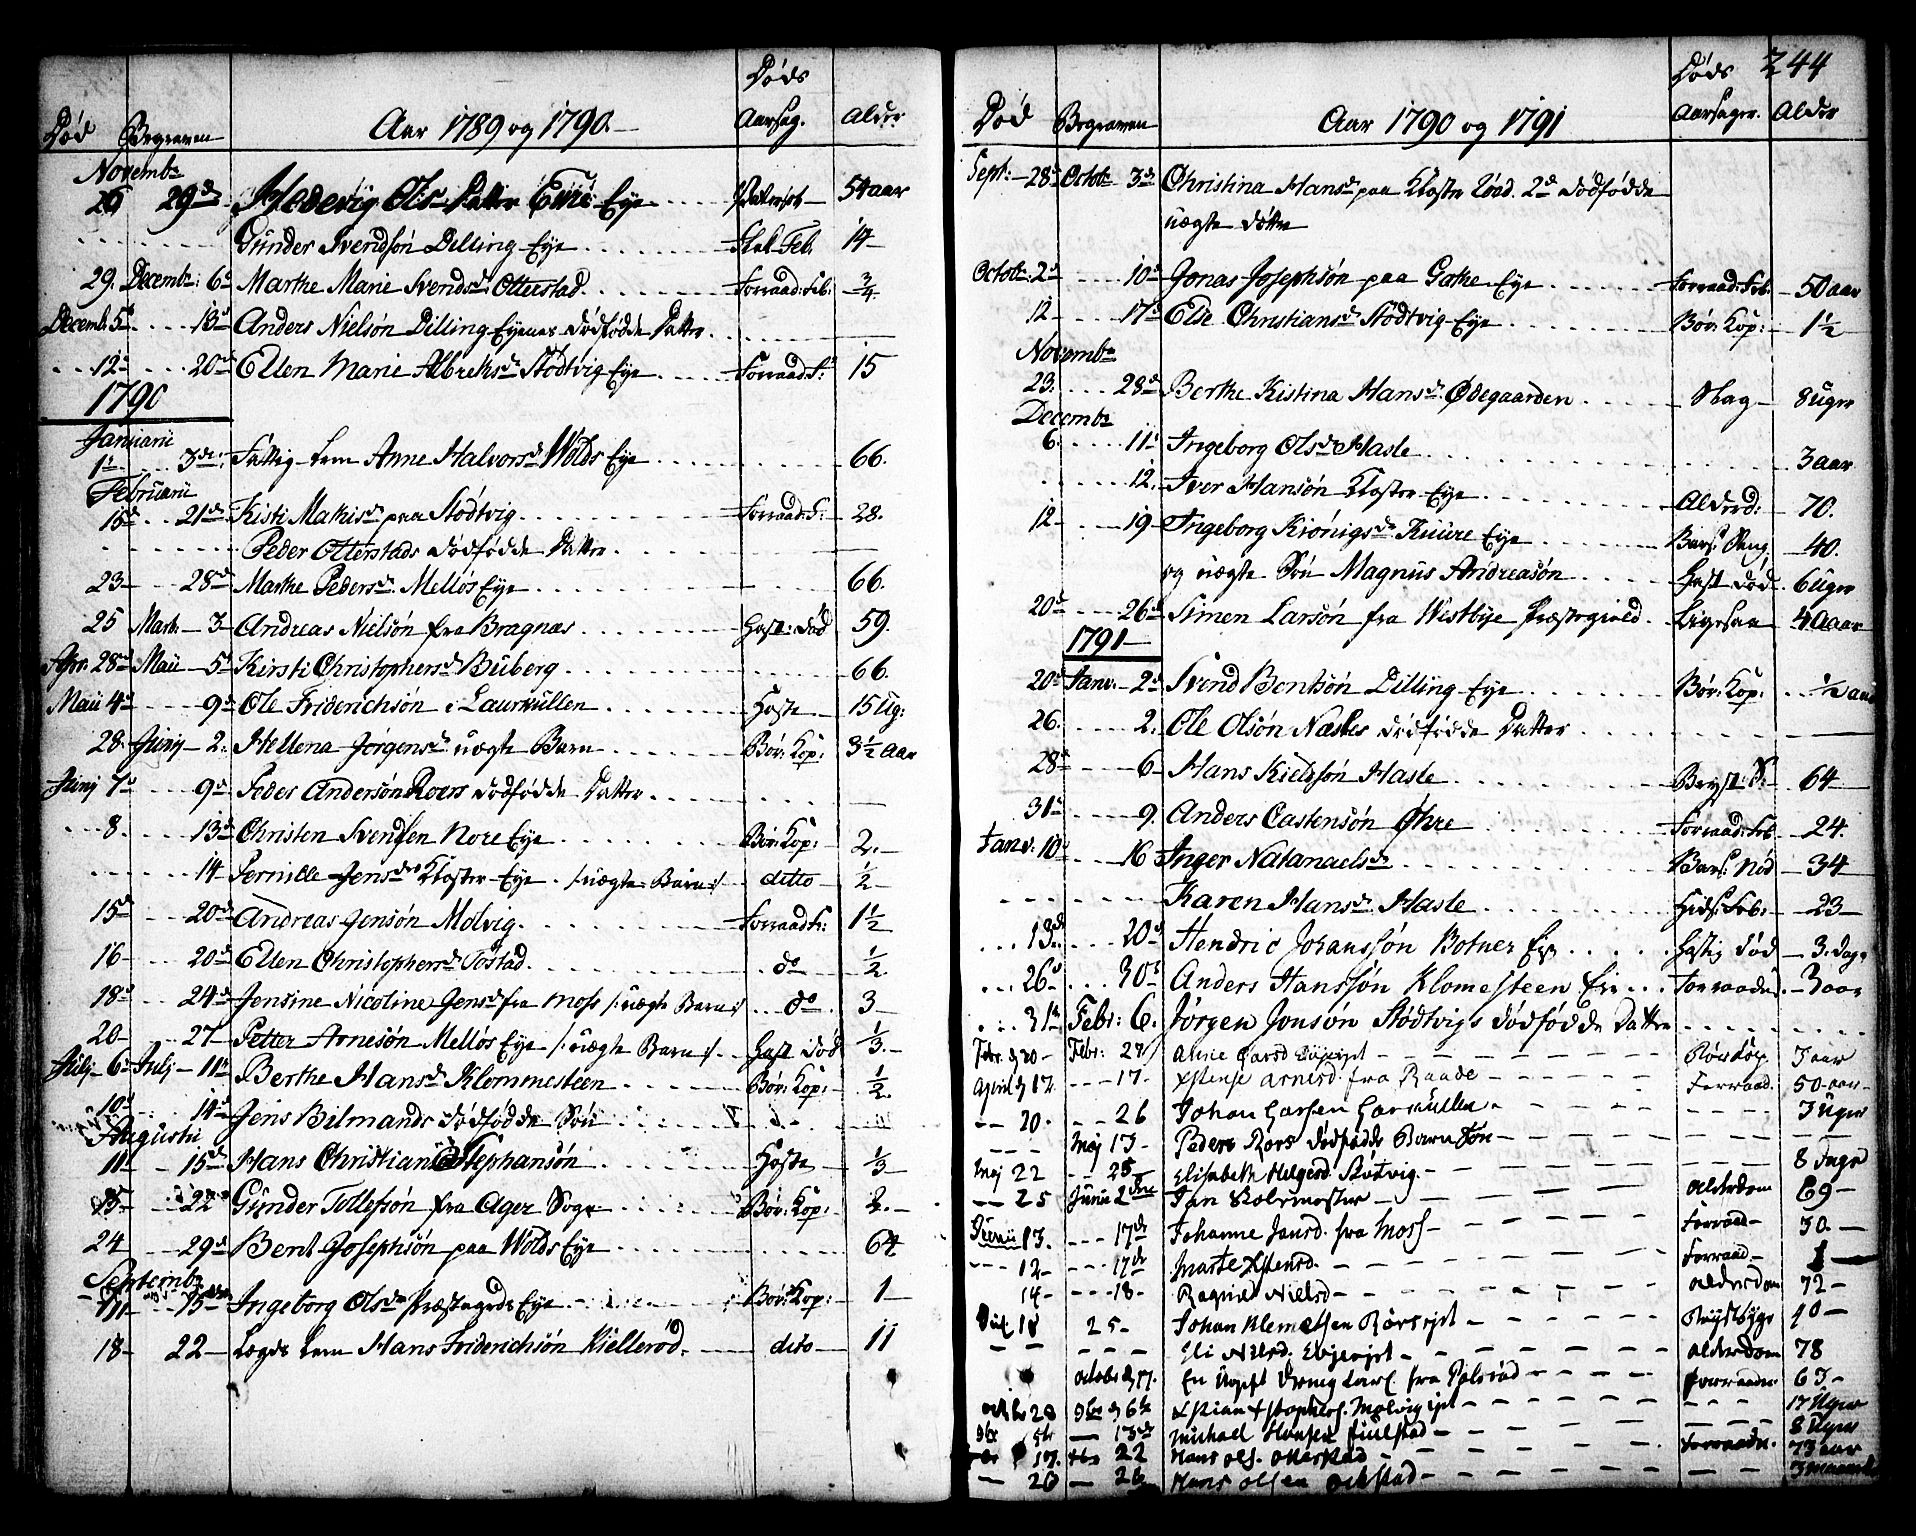 Døds
Død Begraven Aar 1789 og 1790. Aarsag. Alder
Novembr
26 29de Hedevig Ols Datter Eye 54 aar
Gunder Svendsøn Dilling Eye Feb. 14
29. Decembr: 6te Marthe Marie Svendsd. Otterstad Forraad: Feb: 3/4
Decemb: 5te 13de Anders Nielsøn Dilling Eyenes dødfødde Datter
12te 20de Ellen Marie Albrektsd. Stødtvig Eye Forraad: F: 15
1790
Januarii
1te 3de Fattig Lem Anne Halvorsd. Wolds Eye 66.
Februarii
16d 21de Kisti Mathisd. paa Stødtvig Forraad: F: 28.
Peder Otterstads dødfødde Datter
23 28de Marthe Pedersd. Mellös Eye 66.
25 Mart: 3 Andreas Nielsøn fra Bragnæs Hast: Død 59.
Apr. 28de Maii 5te Kirsti Christophersd. Buberg 66.
Maii 4de 9de Ole Friderichsøn i Laurkullen Hoste 15 Ug:
28. Junij 2. Hellena Jørgensd. uægte Barn Bør: Kop: 3½ Aar
Junij 7de 9de Peder Andersøn Roers dødfødde Datter
8. 13de Christen Svendsen Nore Eye Bør: Kop: 2.
14 Pernille Jensd. Kloster Eye /: uægte Barn :/ ditto ½
15d 20de Andreas Jensøn Molvig Forraad F: 1½
16 20de Ellen Christophersd. Tøstad do ½
18de 24de Jensine Nicoline Jensd. fra Moss /: uægte Barn :/ do 3
20 27 Petter Arnesøn Mellös Eye /: uægte Barn :/ Hast Død 1/3
Julij 6te Julij 11te Berthe Hansd. Klommesteen Bør: Kop: ½
10de 14de Jens Bilmands dødfødde Søn
Augusti
11 15de Hans Christian Stephansøn Hoste 1/3
15 22de Gunder Tollefsøn fra Ager Sogn Bør: Kop: 2.
24 29de Bent Josephsøn paa Wolds Eye 64
Septembr
11 15de Ingeborg Olsd. Præstegrds Eye Bør: Kop: 1
18 22 Lægds Lem Hans Friderichsøn Kiellerød dito 11
Døds 244
Død Begraven Aar 1790 og 1791 Aarsager. Alder
Sept: 28de Octobr 3de Christina Hansd. paa Kloster 2de dødfødde
uægte døttre
Octobr: 2de 10de Jonas Josephsøn paa Gothe Eye Forraad: Feb. 50 aar
12 17de Else Christiansd. Stødtvig Eye Bør: Kop: 1½
Novembr
23. 28de Berthe Kistina Hansd. Ødegaarden Slag 8 uger
Decembr
6. 11te Ingeborg Olsd. Hasle 3 aar
12. Iver Hansøn Kloster Eye Alderd: 70.
12 19 Ingeborg Kiönigsd. Eye Bars: Seng 40.
og uægte Søn Magnus Andreasøn Hast Død 6 Uger
20de 26de Simen Larsøn fra Westbye Præstegield 4 Aar
1791
20de Janv. 2de Svend Bentsøn Dilling Eye Bør: Kop: ½ aar
26. 2. Ole Olsøn Næshes dødfødde Datter
28de 6 Hans Kieldsøn Hasle Bryst: S: 64
31te 9. Anders Castensøn Øhre Forraad: Feb. 24.
Janv. 10de 16 Inger Natanaelsd. Bars: Nød 34
Karen Hansd. Hasle Hids: Feb: 23
13de 20de Hendric Johanssøn Botner Eye Hastig Død 3. Dage
26de 30te Anders Hanssøn Klomesteen Eie Forraadn. 3 aar
31te Febr: 6. Jørgen Jonsøn Stødtvigs dødfødde Datter
Febr. d 20 Febr: 27 Anne Larsd Evjeejet 3 aar
April d 12 17. Xstense Arnesd. fra Raade Forraad. 50 aar
20. 26 Johan Larsen Larkullen 3 Uger
Maj 13 Peders Rors dødfødde Barn Søn
Maj 22 25 Elisabeth Helgesd Støtvig 8 Dage
25 Junii 2den Jan Alderdom 69
Junii 13. 17de Johanne Jansd. fra Moss Forraad 30.
12 17de Marte Xstensd. Forraad 1
14 18. Ragnil Nielsd Alderdom 72
18 25 Johan Klemetsen Rørsejet Brystsyge 40
Eli Nilsd. Evjeejet Alderdom 78
Octobr d 17. fra Palsrød Forraadn. 63
Octbr 28 9br d 6te Xstian Xstophers. Molvig ejet 17 Uger
9br 5te 13de Michael Hansen 8 Uger
17. 22 Hans Ols. Otterstad Forraadn. 73 aar
20 26 Hans Olsen Ockstad